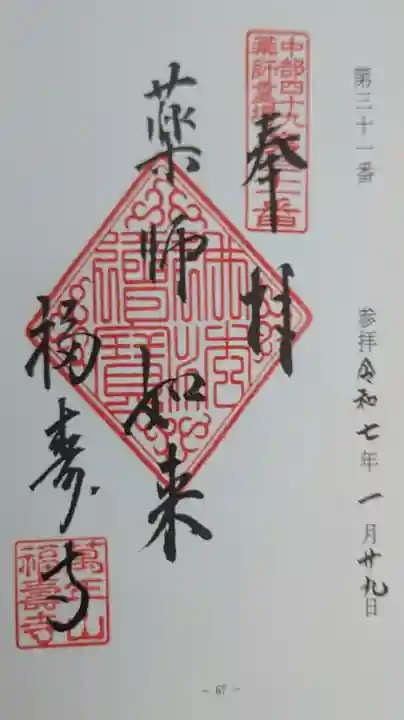 第三十一番
参拝令和七年一月廿九日
中部四十九
薬師霊場
奉拝
薬師如来
福寿寺
三寶
萬年山
福壽寺
- 67 -